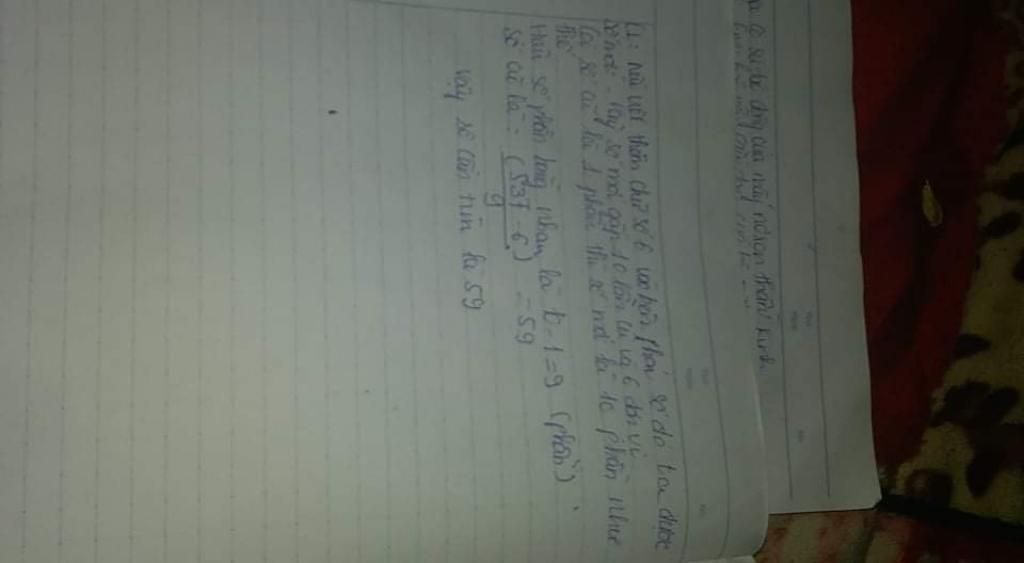 của này
thần kinh
L1: nếu viết thêm chữ số 6 vào bên phải số đó ta được
số mới - Vậy số mới gấp 10 lần cũ và 6 đơn vị
là số cũ là 1 phần thì số mới là 10 phần như
thế
Hiệu số phần bằng nhau là 10-1=9 (phần)
số cũ là : (537-6) = 59
9
Vậy số cần tìm là 59